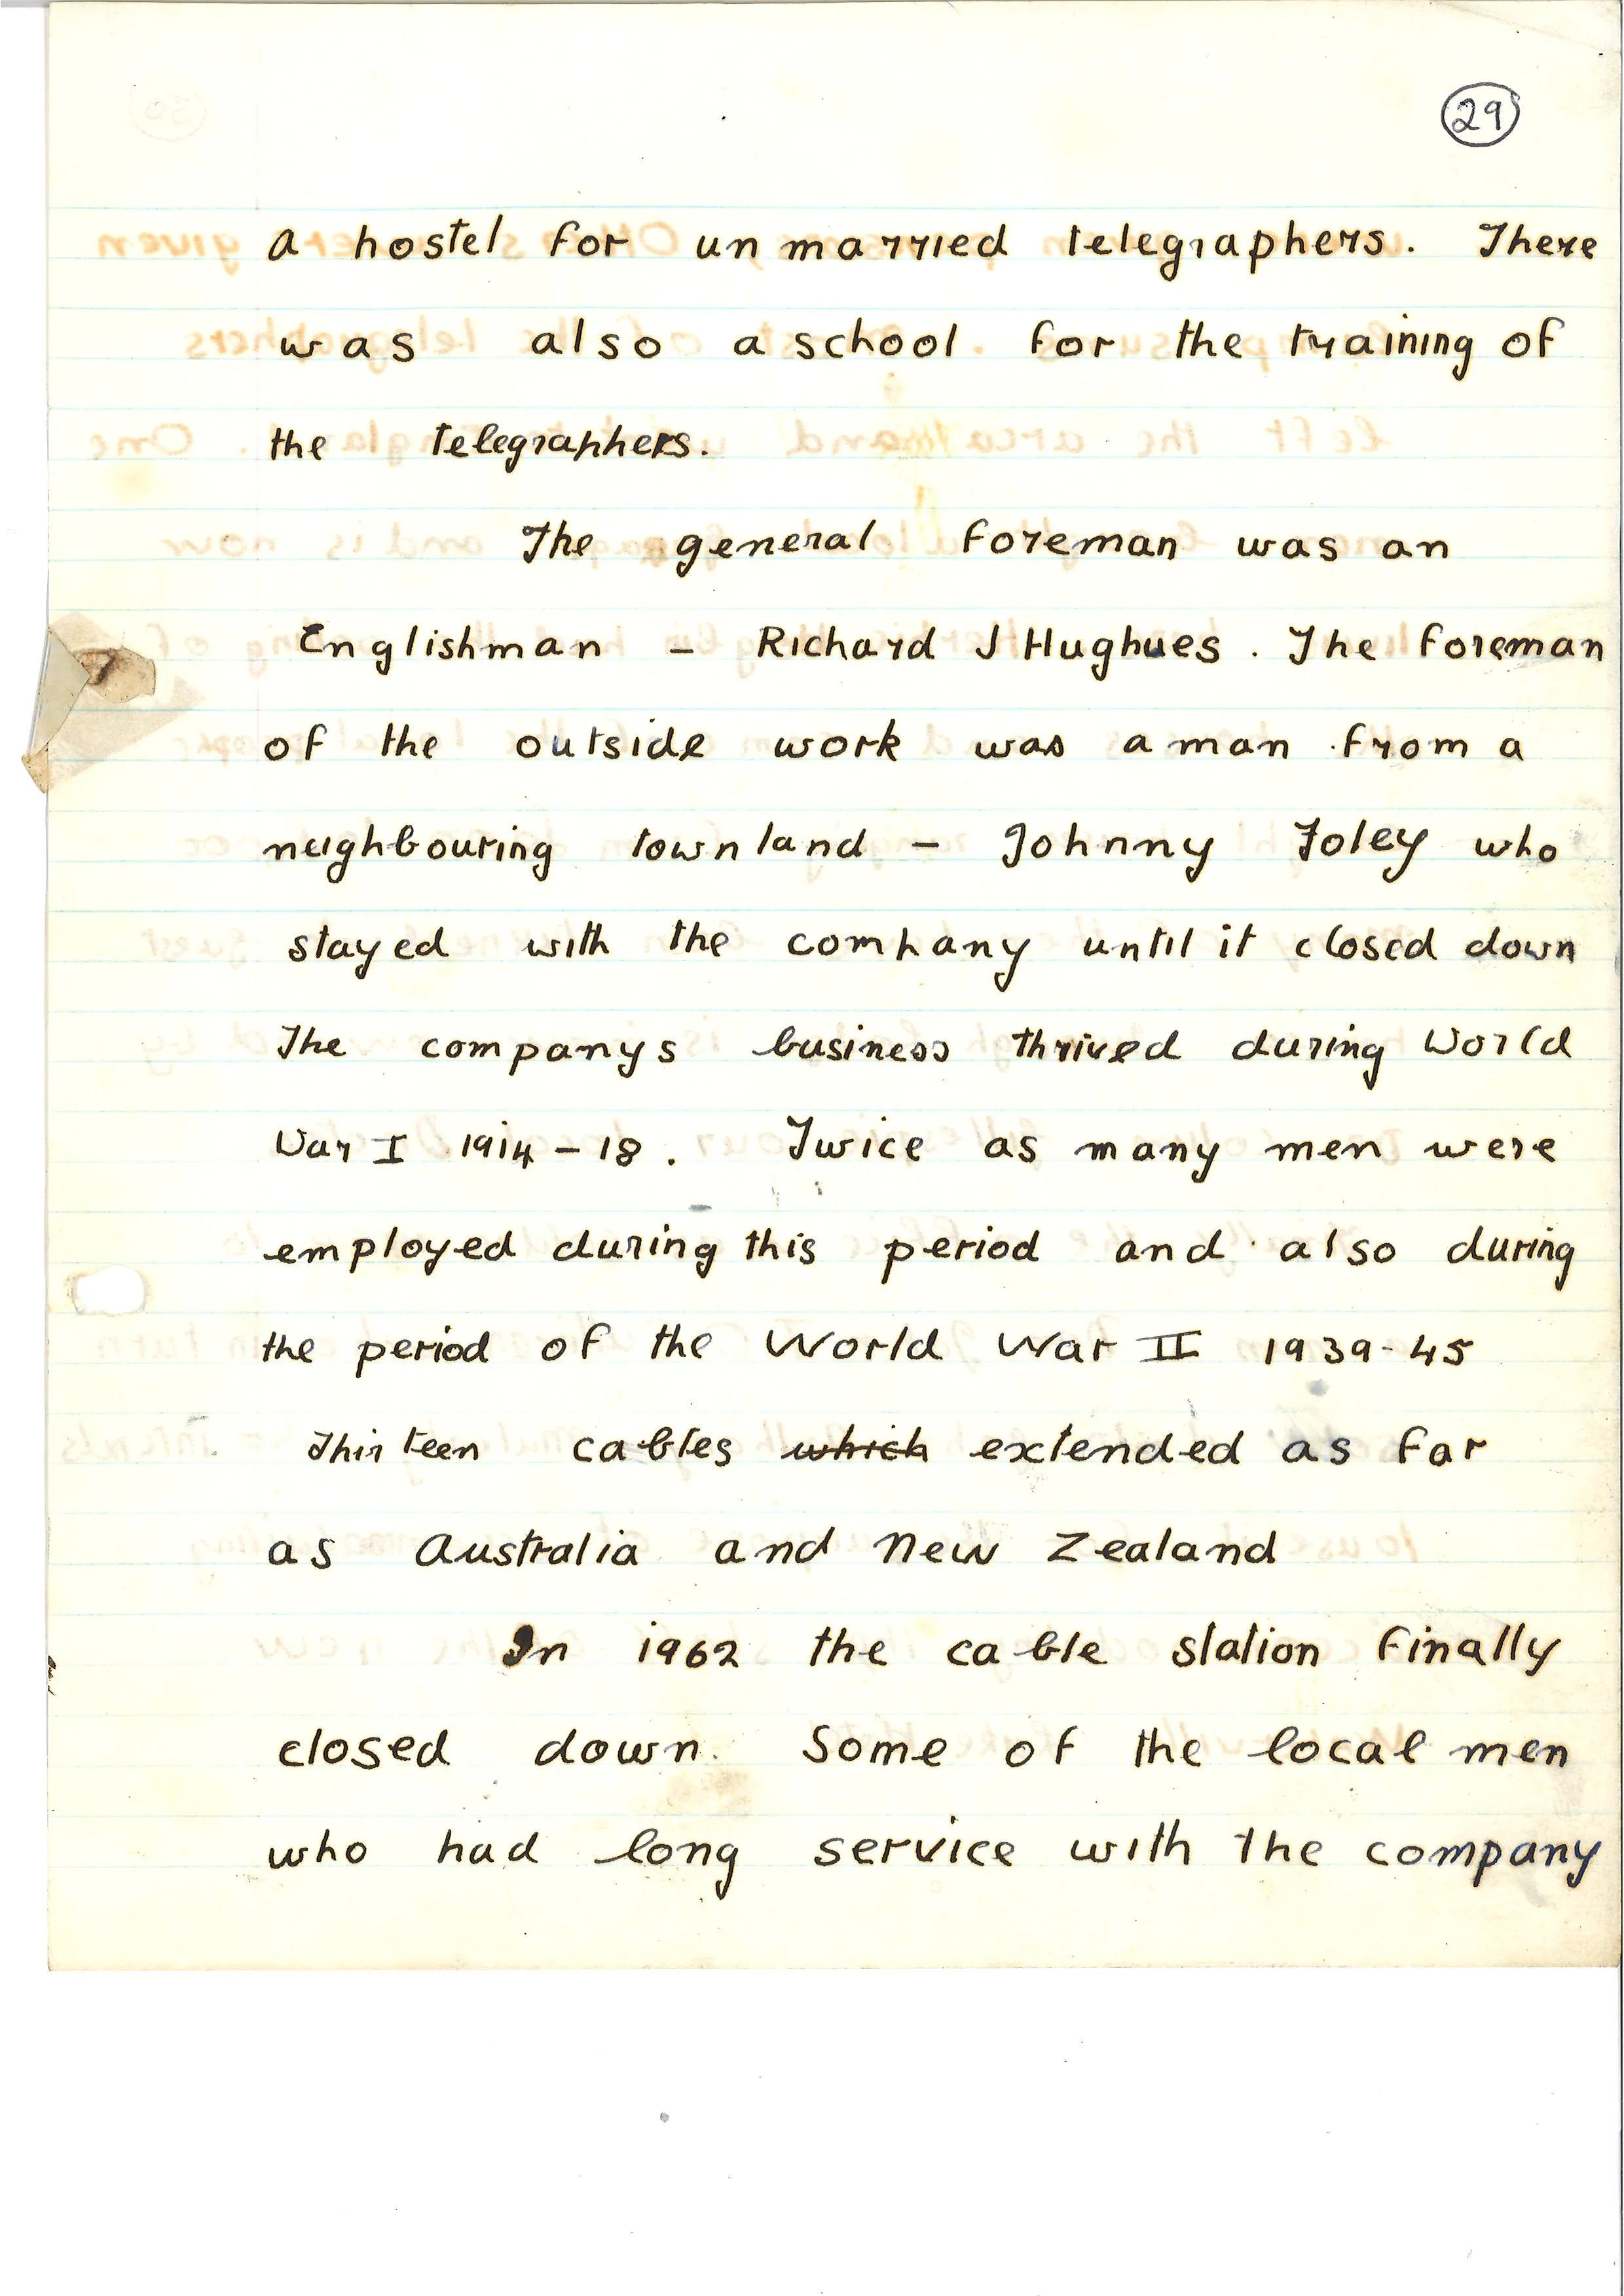 29
a hostel for unmarried telegraphers. There
was also a school for the training of
the telegraphers.
The general foreman was an
Englishman - Richard J Hughues. The foreman
of the outside work was a man from a
neighbouring townland - Johnny Foley who
stayed with the company until it closed down
The companys business thrived during World
War I 1914-18. Twice as many men were
employed during this period and also during
the period of the World War II 1939-45
Thirteen cables which extended as far
as Australia and New Zealand
In 1962 the cable station finally
closed down. Some of the local men
who had long service with the company